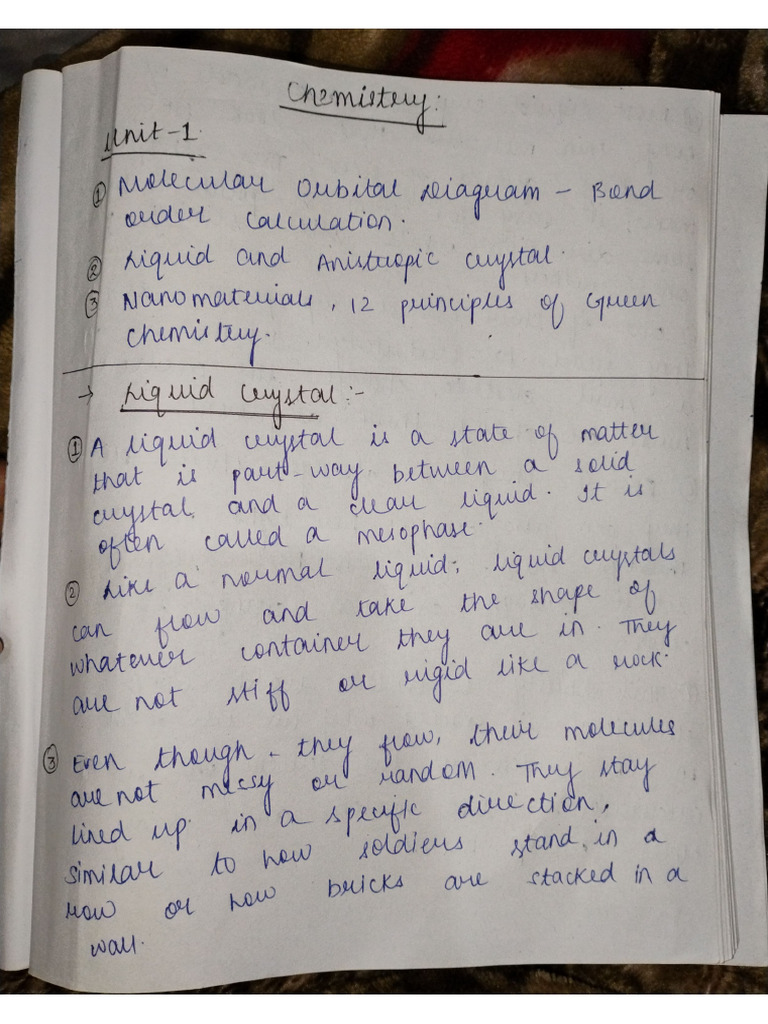 Chemistry:
Unit-1.
① Molecular Orbital Diagram - Bond
order calculation.
② Liquid and Anistropic crystal.
③ Nanomaterials, 12 principles of Green
Chemistry.
→ Liquid Crystal:-
① A liquid crystal is a state of matter
that is part-way between a solid
crystal and a clear liquid. It is
often called a mesophase.
② Like a normal liquid; liquid crystals
can flow and take the shape of
whatever container they are in. They
are not stiff or rigid like a rock.
③ Even though - they flow, their molecules
are not messy or random. They stay
lined up in a specific direction,
similar to how soldiers stand in a
row or how bricks are stacked in a
wall.